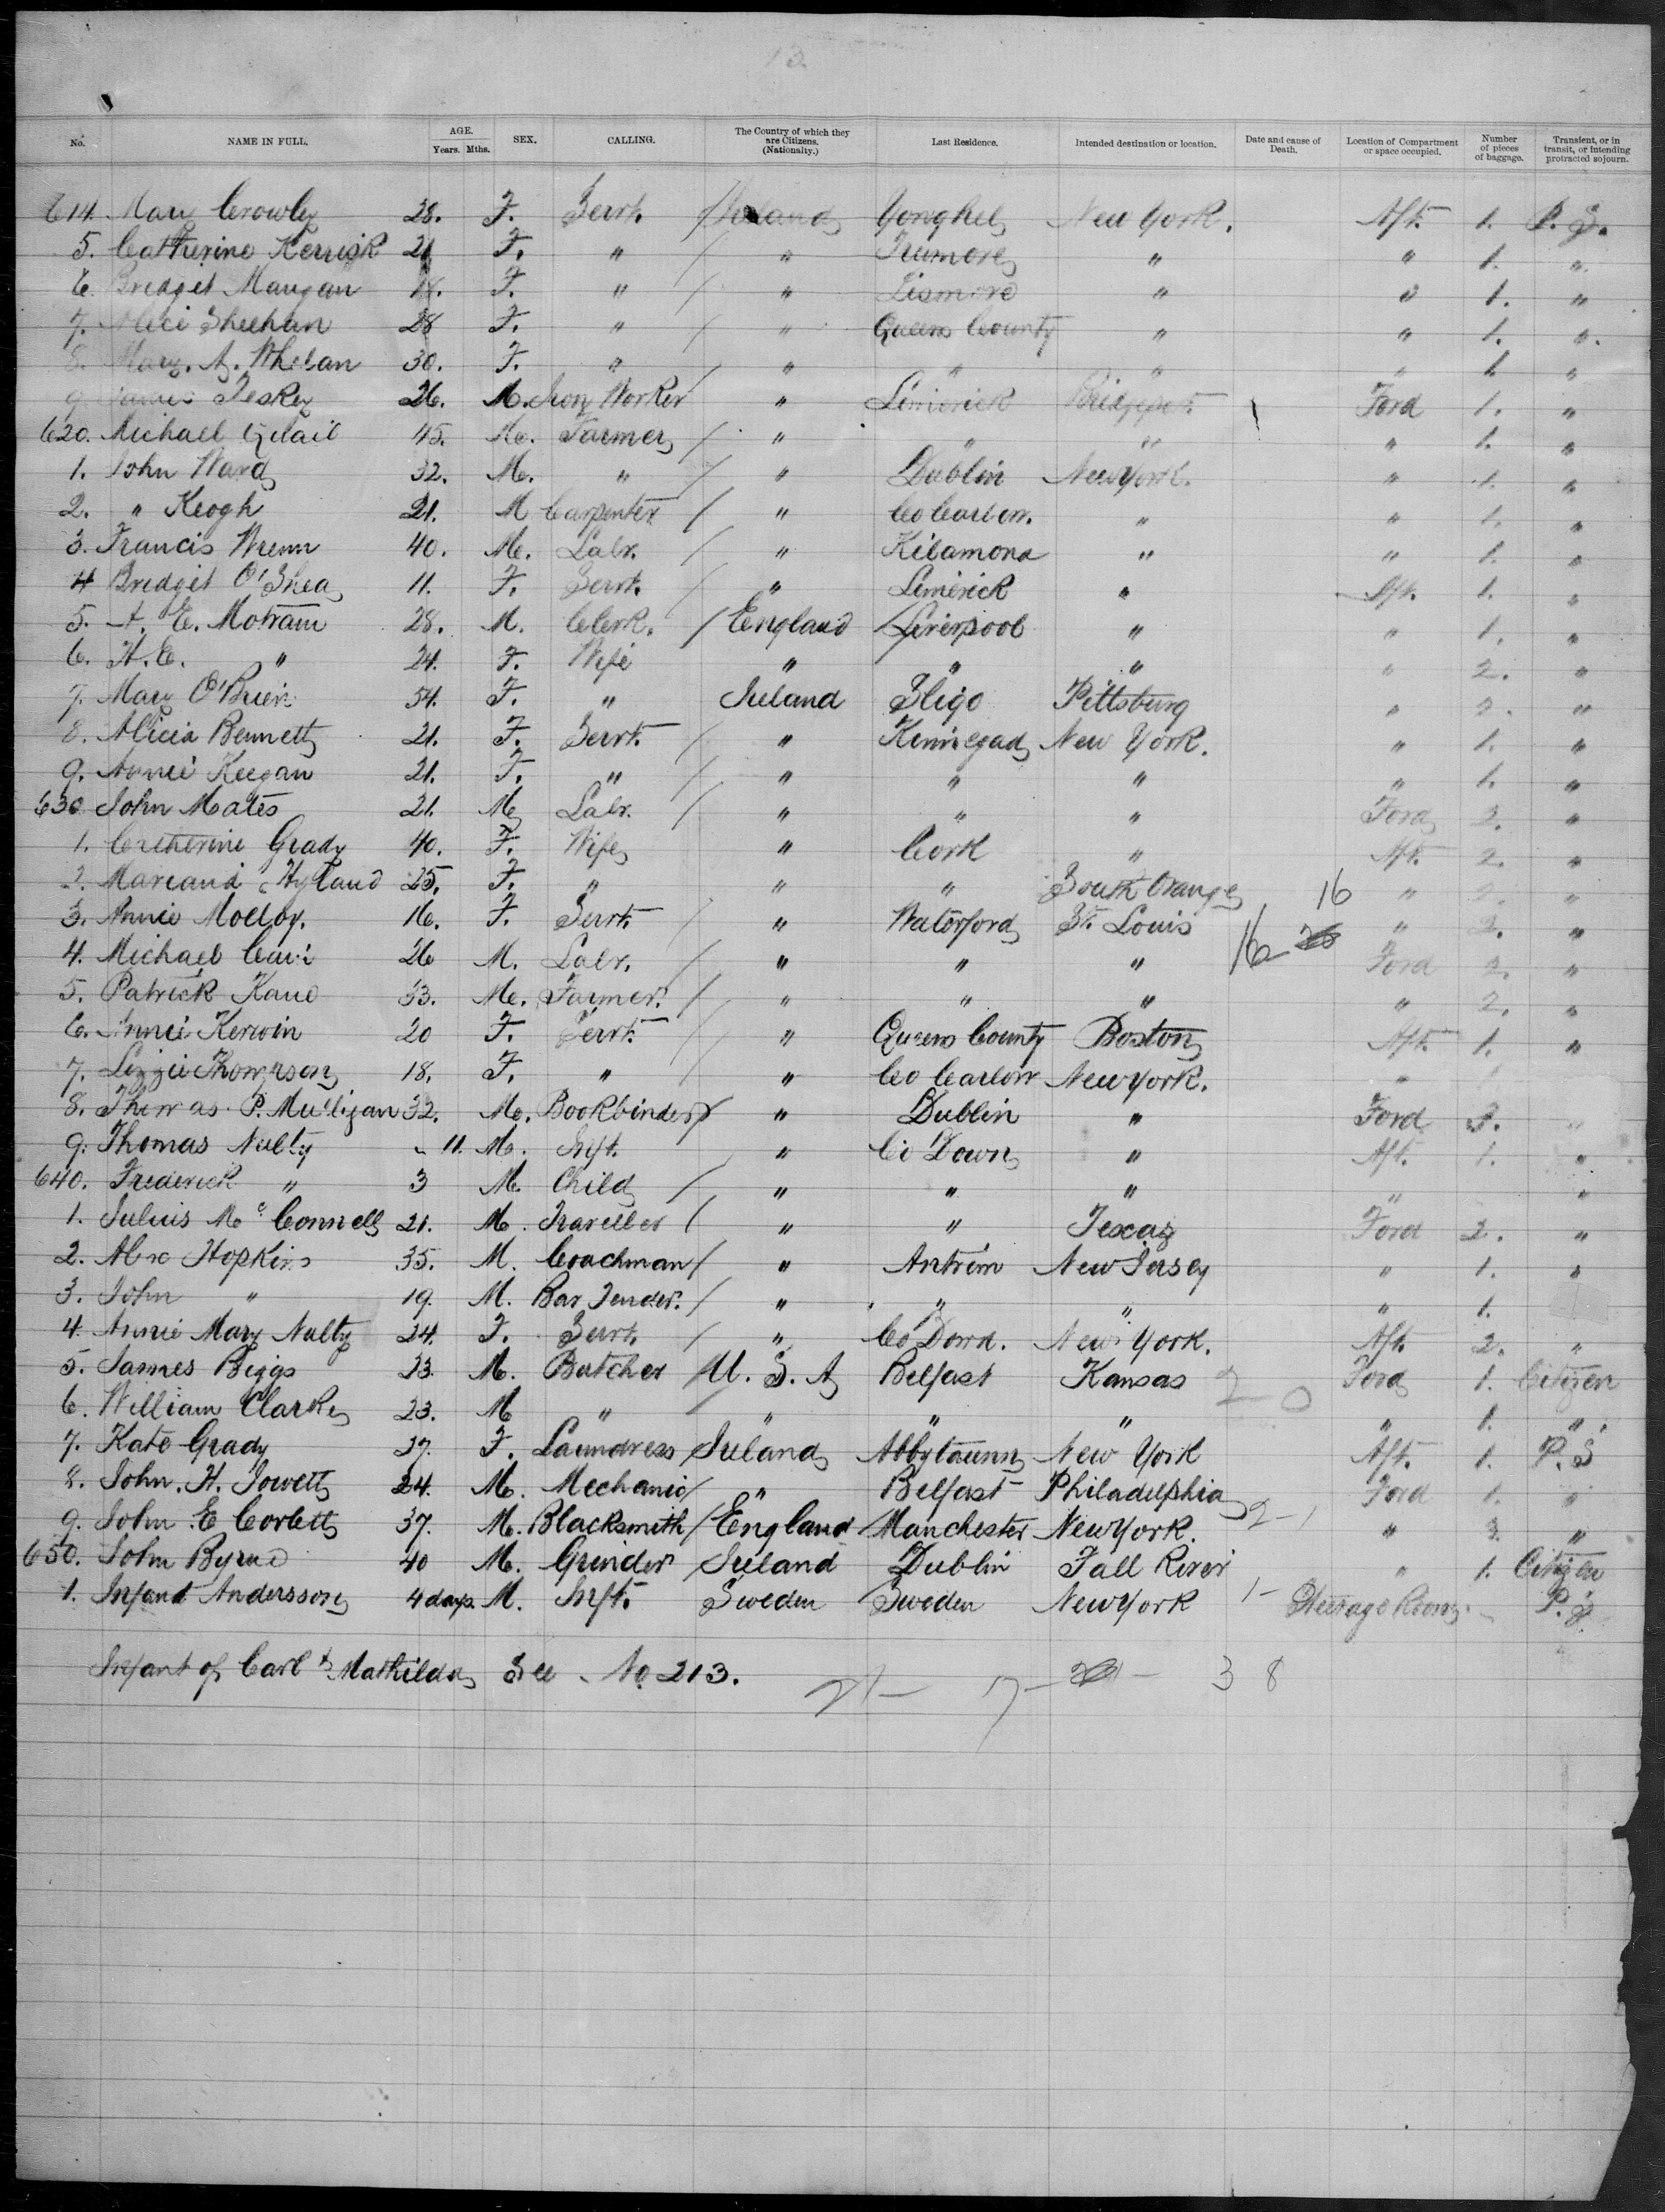 13.
No. NAME IN FULL. AGE. Years. Mths. SEX. CALLING. The Country of which they are Citizens. (Nationalty.) Last Residence. Intended destination or location. Date and cause of Death. Location of Compartment or space occupied. Number of pieces of baggage. Transient, or in transit, or intending protracted sojourn.
614. Mary Crowley 28. F. Servt. / Ireland Yonghel New York. Aft. 1. P. S.
5. Catherine Kerrisk 21 F. " / " Tramore " " 1. "
6. Bridget Mangan 18. F. " / " Lismore " " 1. "
7. Alice Sheehan 28 F. " / " Queens County " " 1. "
8. Mary. A. Whelan 30. F. " / " " " " 1 "
9 James Teskey 26. M. Iron Worker " Limerick Bridgeport Ford 1. "
620. Michael Quail 45. M. Farmer / " " " " 1. "
1. John Ward 32. M. " / " Dublin New York. " 1. "
2. " Keogh 21. M Carpenter / " Co Carlow. " " 1. "
3. Francis Wrenn 40. M. Labr. / " Kilamona " " 1. "
4 Bridget O'Shea 11. F. Servt. / " Limerick " Aft. 1. "
5. A. E. Motram 28. M. Clerk. / England Liverpool " " 1. "
6. H. E. " 24. F. Wife " " " " 2. "
7. Mary O'Brien 54. F. " Ireland Sligo Pittsburg " 2. "
8. Alicia Bennett 21. F. Servt. / " Kinnegad New York. " 1. "
9. Annie Keegan 21. F. " / " " " " 1. "
630 John Mates 21. M Labr. / " " " Ford 2. "
1. Catherine Grady 40. F. Wife " Cork " Aft. 2. "
2. Hyland 25. F. " " " South Orange 16 " 2. "
3. Annie Molloy. 16. F. Servt. " Waterford St. Louis " 2. "
4. Michael 26 M. Labr. / " " " 16 Ford 2. "
5. Patrick Kane 33. M. Farmer. / " " " " 2. "
6. Annie Kerwin 20 F. Servt. / " Queens County Boston Aft. 1. "
7. Lizzie Thompson 18. F. " / " Co Carlow New York. " 1 "
8. Thomas P. Mulligan 32. M. Bookbinder / " Dublin " Ford 3. "
9. Thomas Nulty - 11. M. Inft. " Co Down " Aft. 1. "
640. Frederick " 3 M. Child / " " " " "
1. Julius McConnell 21. M. Traveller / " " Texas Ford 2. "
2. Alex Hopkins 35. M. Coachman / " Antrim New Jersey " 1. "
3. John " 19. M. Bar Tender. / " " " " 1.
4. Annie Mary Nulty 24. F. Servt. / " Co Down. New York. Aft. 2. "
5. James Biggs 23. M. Butcher U. S. A Belfast Kansas 2 - 0 Ford 1. Citizen
6. William Clarke 23. M " " " " " 1. "
7. Kate Grady 37. F. Laundress Ireland New York Aft. 1. P. S
8. John. H. Jowett 24. M. Mechanic / " Belfast Philadelphia Ford 1. "
9. John. E Corbett 37. M. Blacksmith / England Manchester New York. 2-1 " 3. "
650. John Byrne 40 M. Grinder Ireland Dublin Fall River " 1. Citizen
1. Infant Andersson 4 days. M. Inft. Sweden Sweden New York 1- Steerage Room - P. S
Infant of Carl & Mathilda See No 213. 21- 17- 38